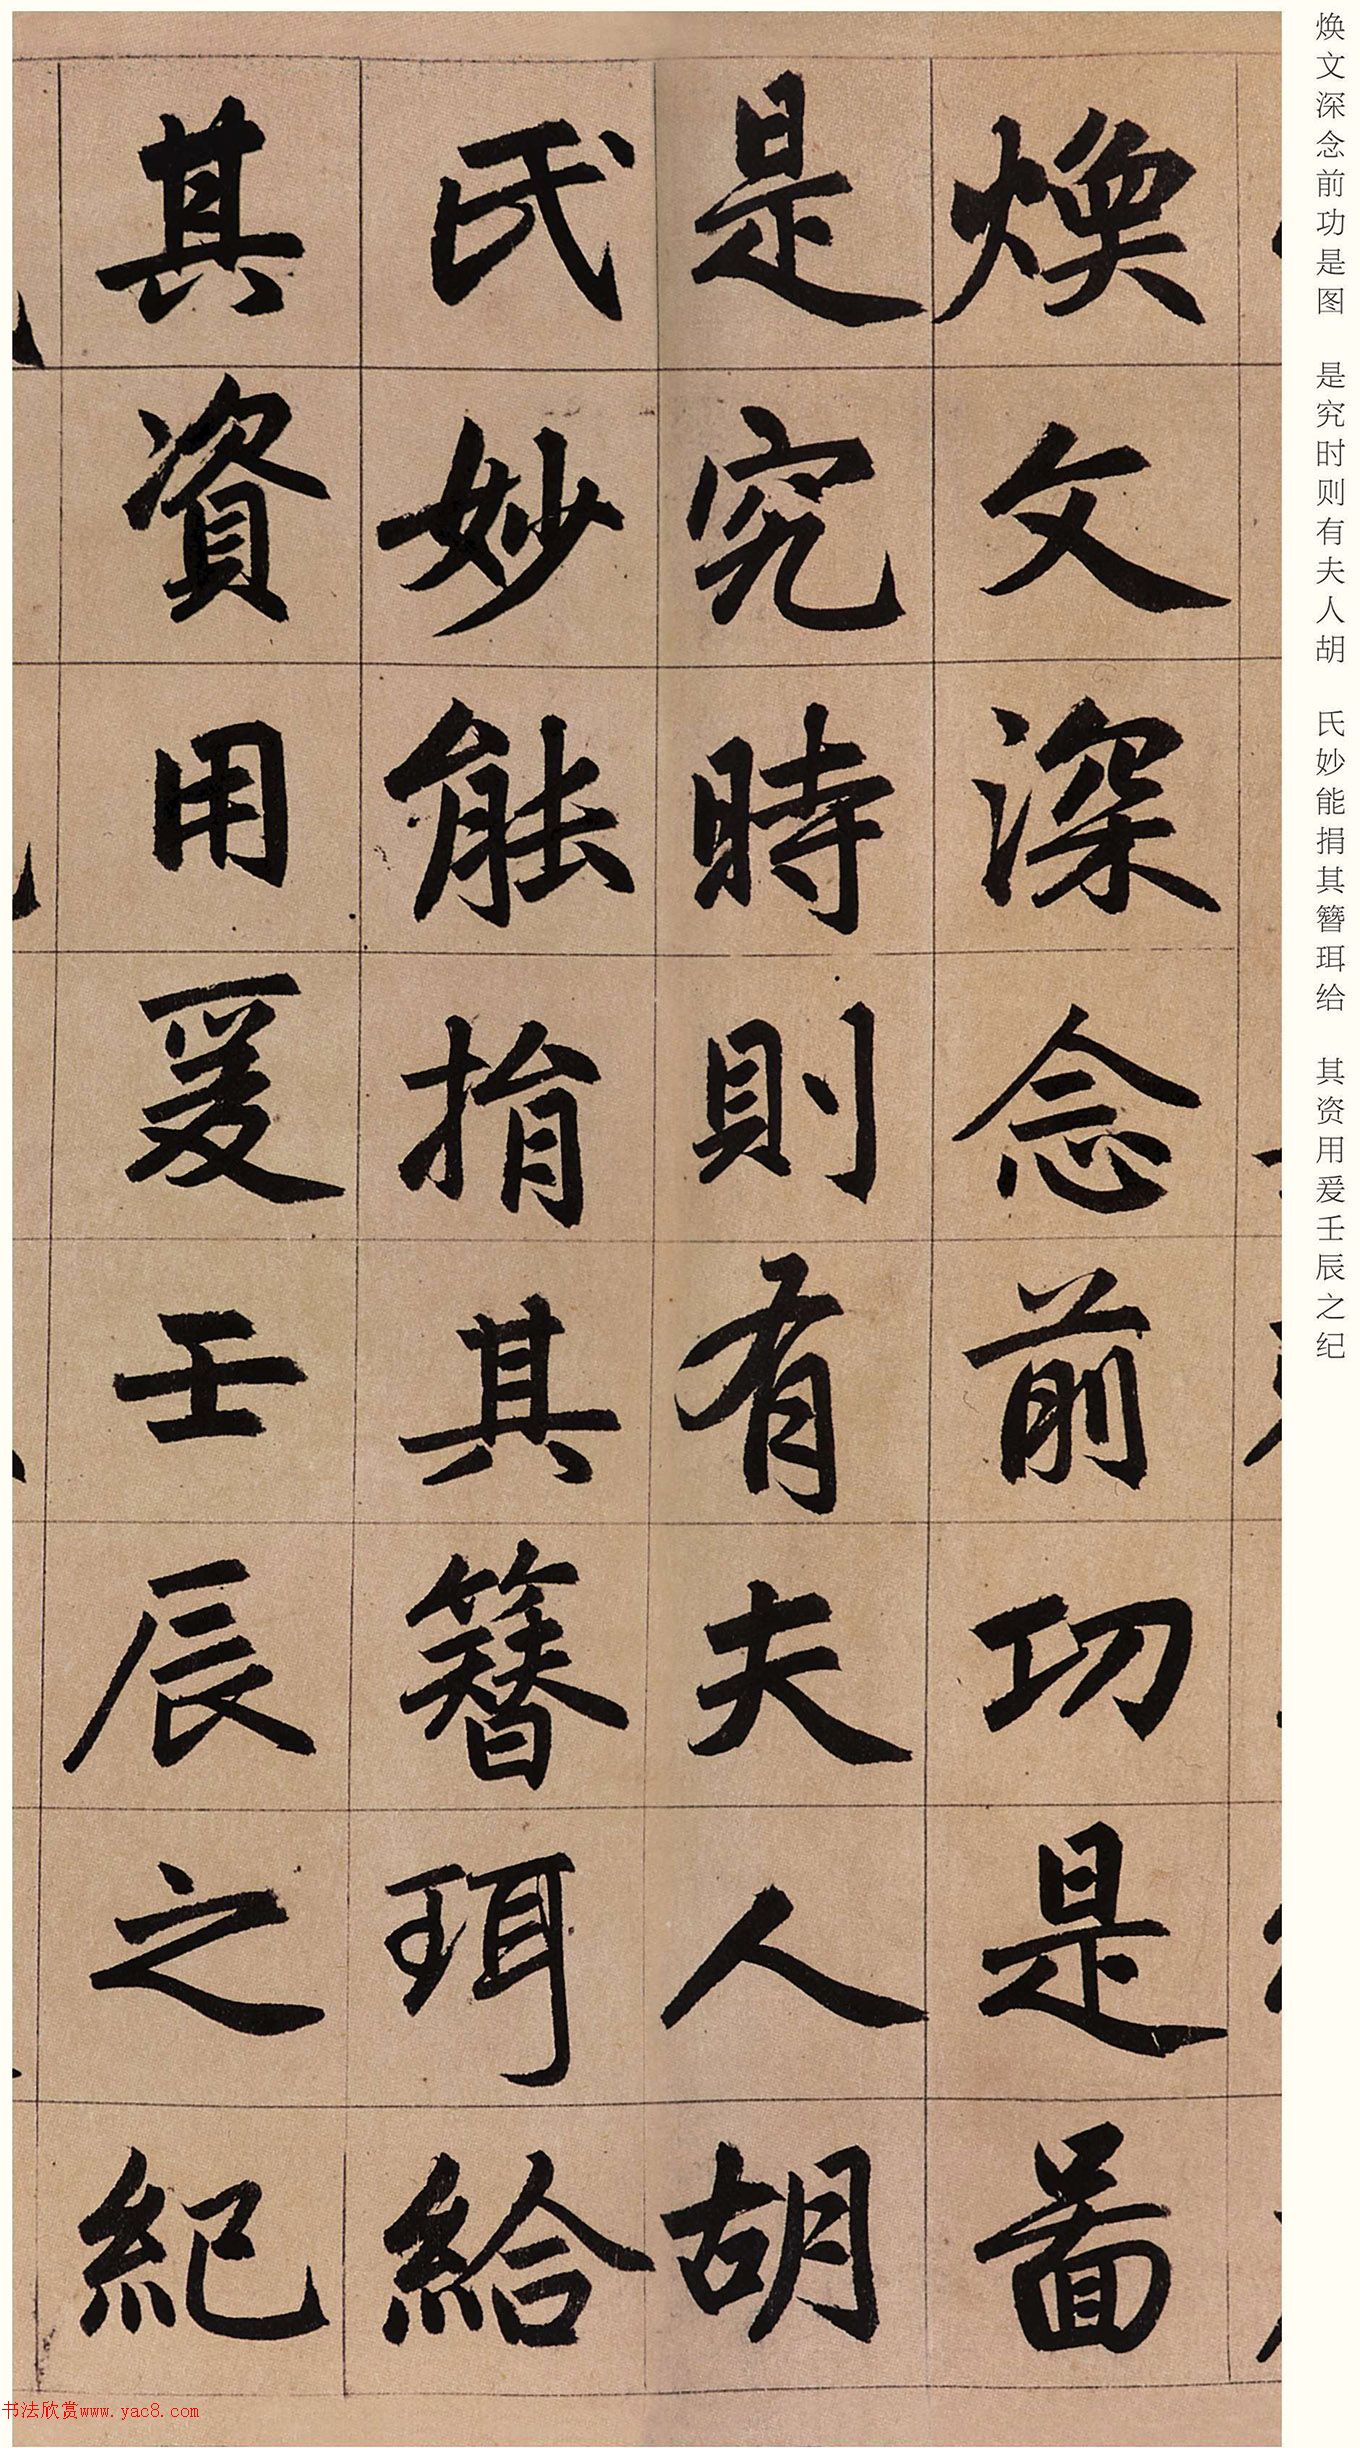 焕文深念前功是图 是究时则有夫人胡 氏妙能捐其簪珥给 其资用爰壬辰之纪
煥文深念前功是啚
是究時則有夫人胡
氏妙能捐其簪珥給
其資用爰壬辰之紀
书法欣赏www.yac8.com